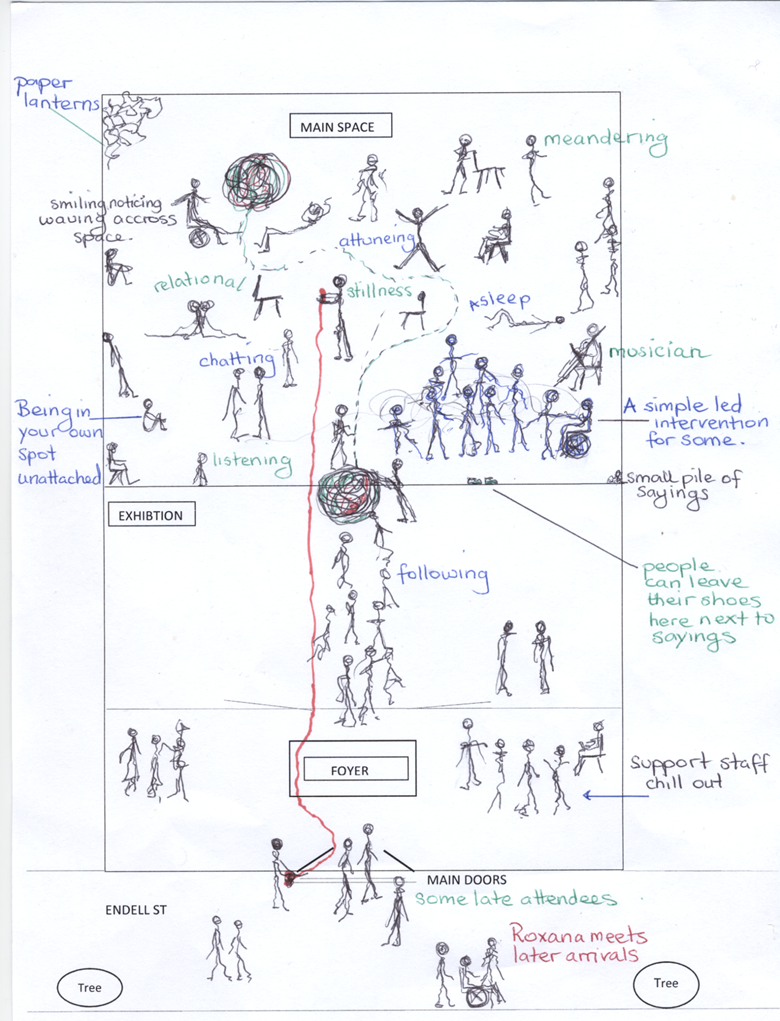 paper
lanterns
MAIN SPACE
meandering
smiling noticing
waving accross
space.
attuneing
relational
stillness
Asleep
chatting
musician
Being in
your own
spot
unattached
A simple led
intervention
for some.
listening
small pile of
sayings
EXHIBTION
following
people
can leave
their shoes
here next to
sayings
FOYER
Support staff
chill out
MAIN DOORS
ENDELL ST
some late attendees
Roxana meets
later arrivals
Tree
Tree